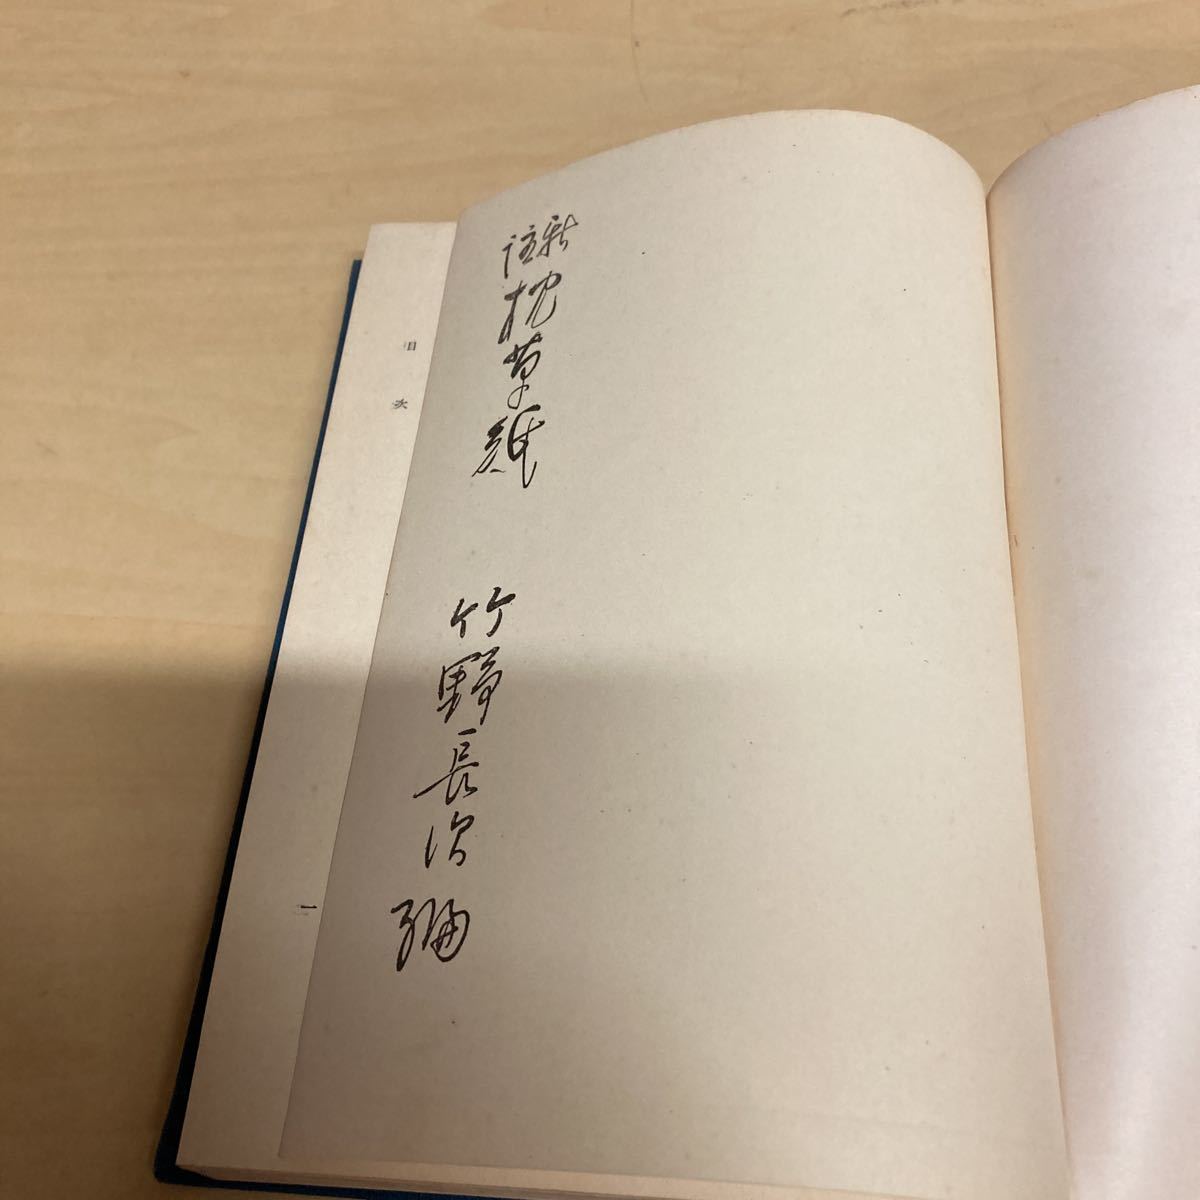 新註 枕草紙 竹野長次 編
目次
一